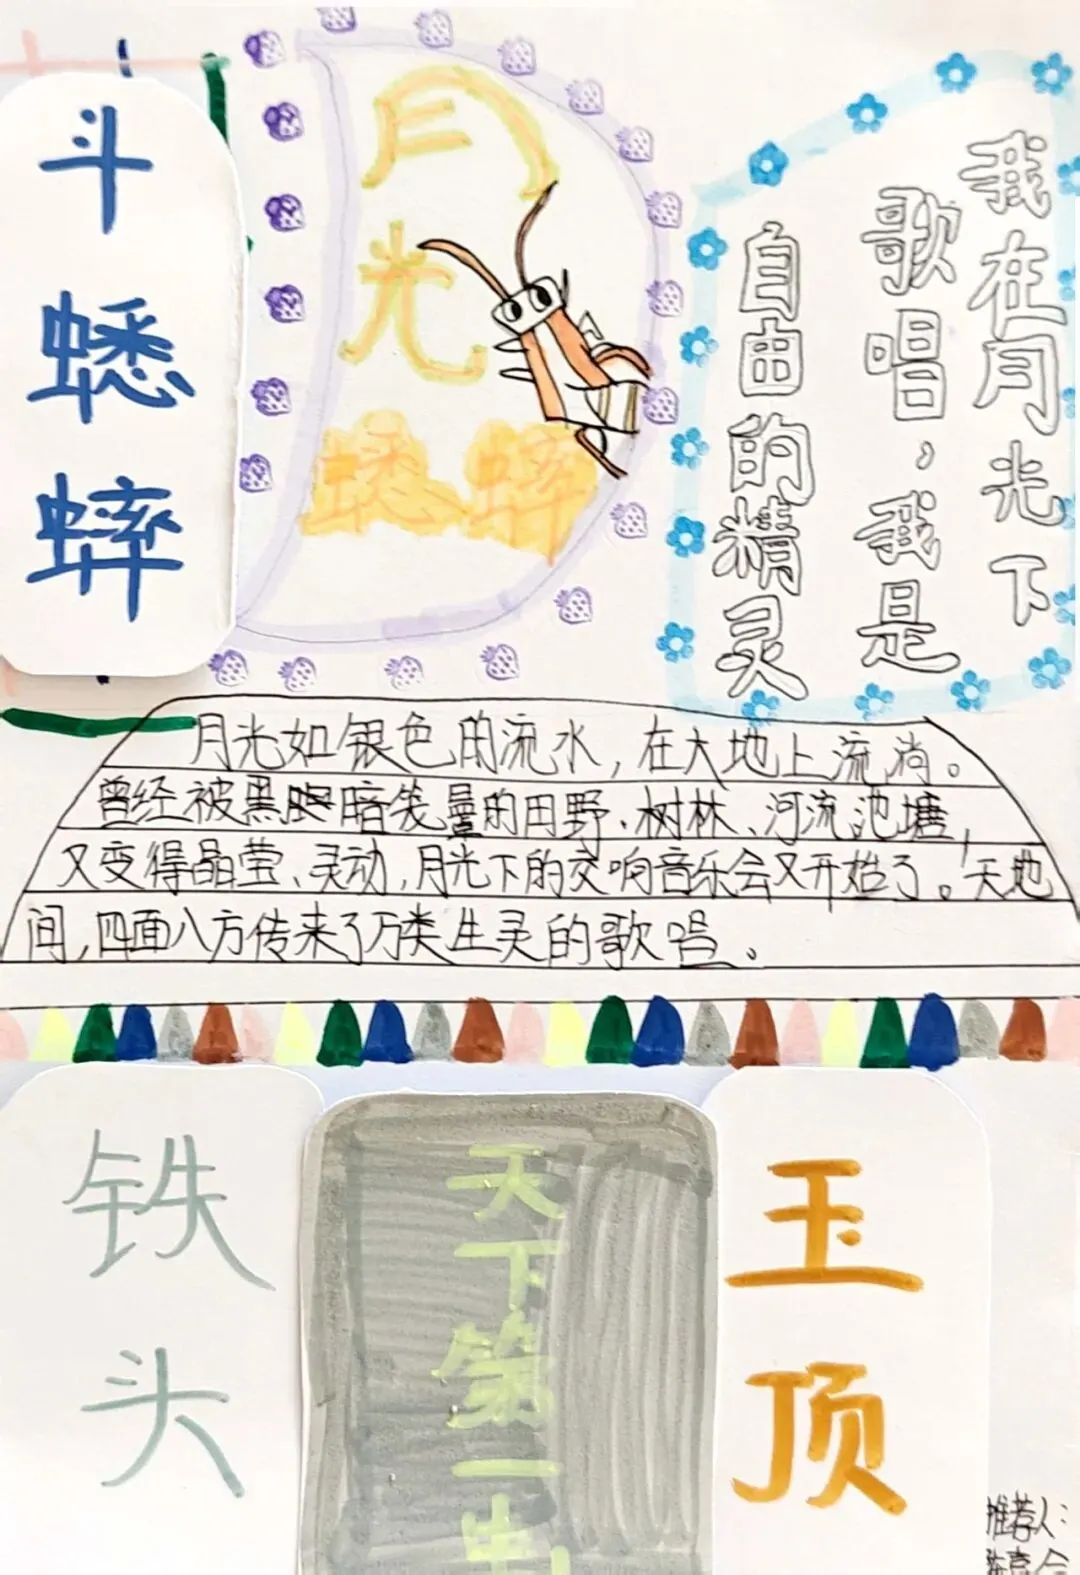 斗蟋蟀
月光
蟋蟀
我在月光下
歌唱，我是
自由的精灵
月光如银色的流水，在大地上流淌。
曾经被黑暗笼罩的田野、树林、河流池塘，
又变得晶莹、灵动，月光下的交响音乐会又开始了。天地
间，四面八方传来了万类生灵的歌唱。
铁头
天下第一
玉顶
推荐人：